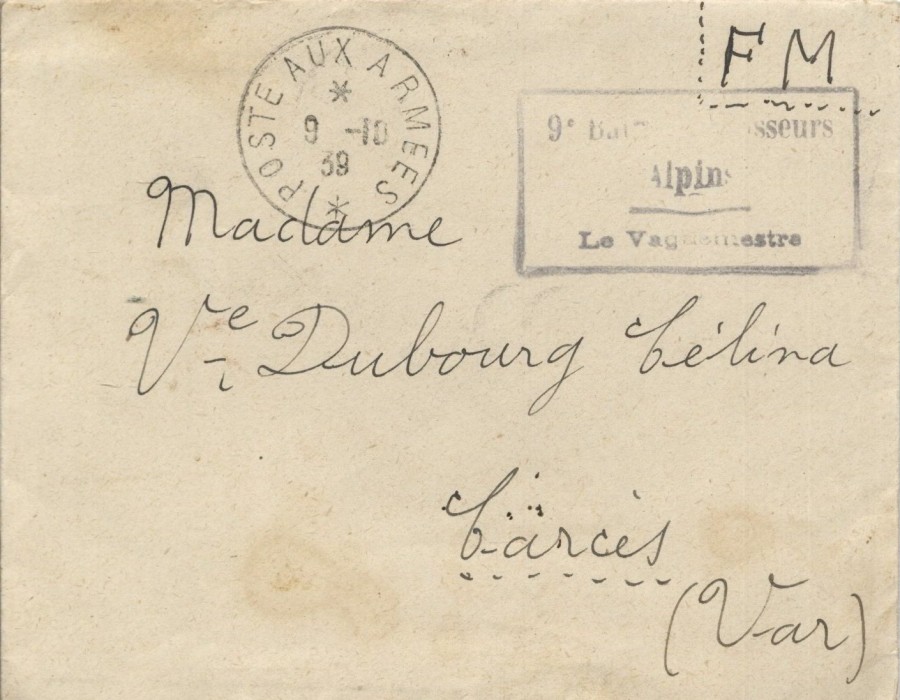 F M
POSTE AUX ARMEES
9 -10
39
9e Bat sseurs
Alpins
Le Vaguemestre
Madame
Ve Dubourg Célina
Carcès
(Var)